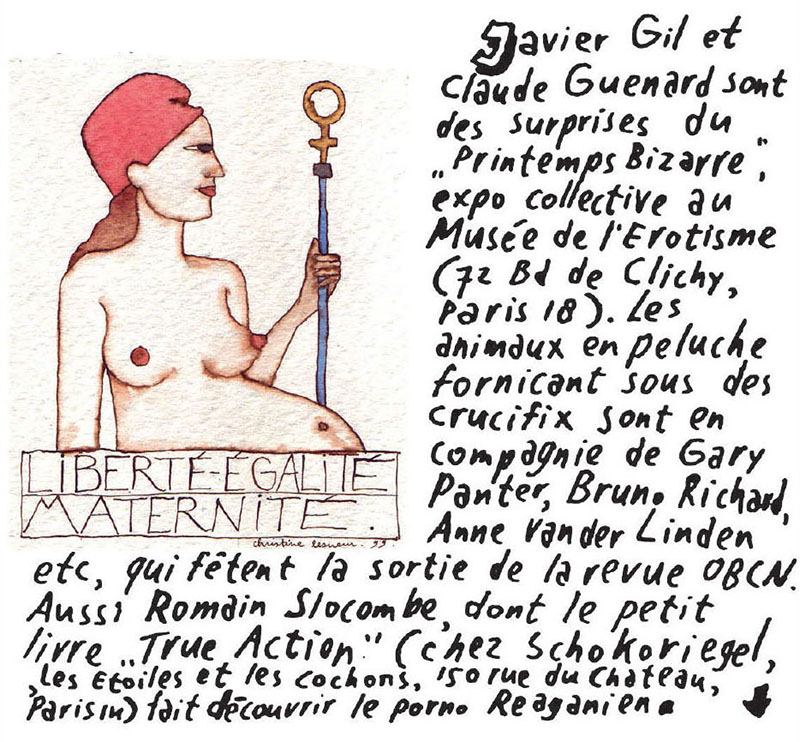 Javier Gil et
Claude Guenard sont
des surprises du
„Printemps Bizarre”,
expo collective au
Musée de l'Erotisme
(72 Bd de Clichy,
Paris 18). Les
animaux en peluche
fornicant sous des
crucifix sont en
compagnie de Gary
Panter, Bruno Richard,
Anne Vander Linden
etc, qui fêtent la sortie de la revue OBCN.
Aussi Romain Slocombe, dont le petit
livre „True Action” (chez Schokoriegel,
„Les Etoiles et les cochons, 150 rue du Chateau,
Paris 14) fait découvrir le porno Reaganien.
LIBERTÉ-ÉGALITÉ
MATERNITÉ.
christine lesueur. 99.